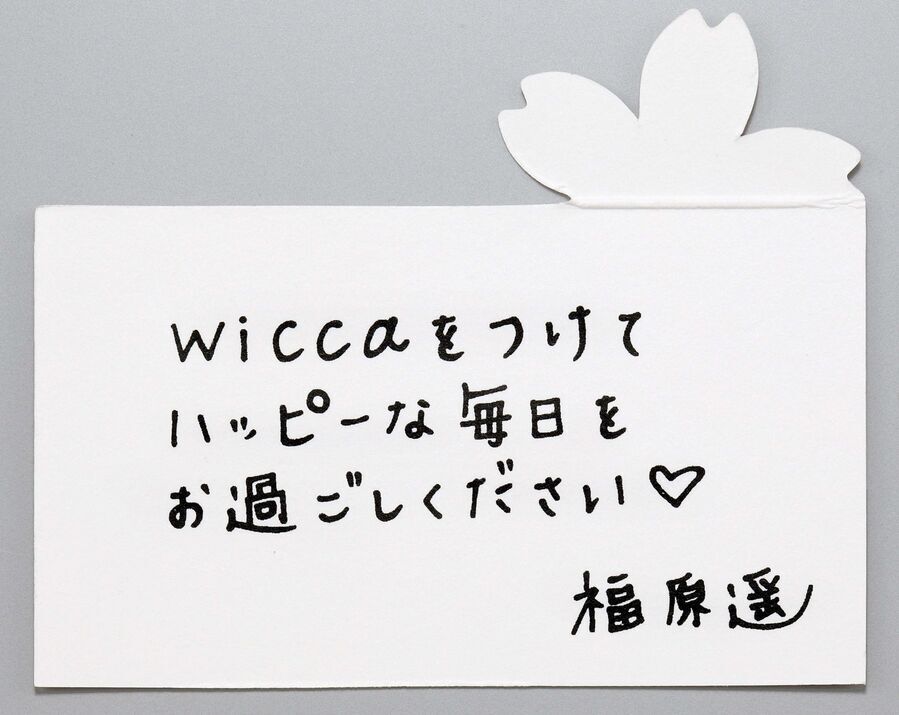 wiccaをつけて
ハッピーな毎日を
お過ごしください♡
福原遥